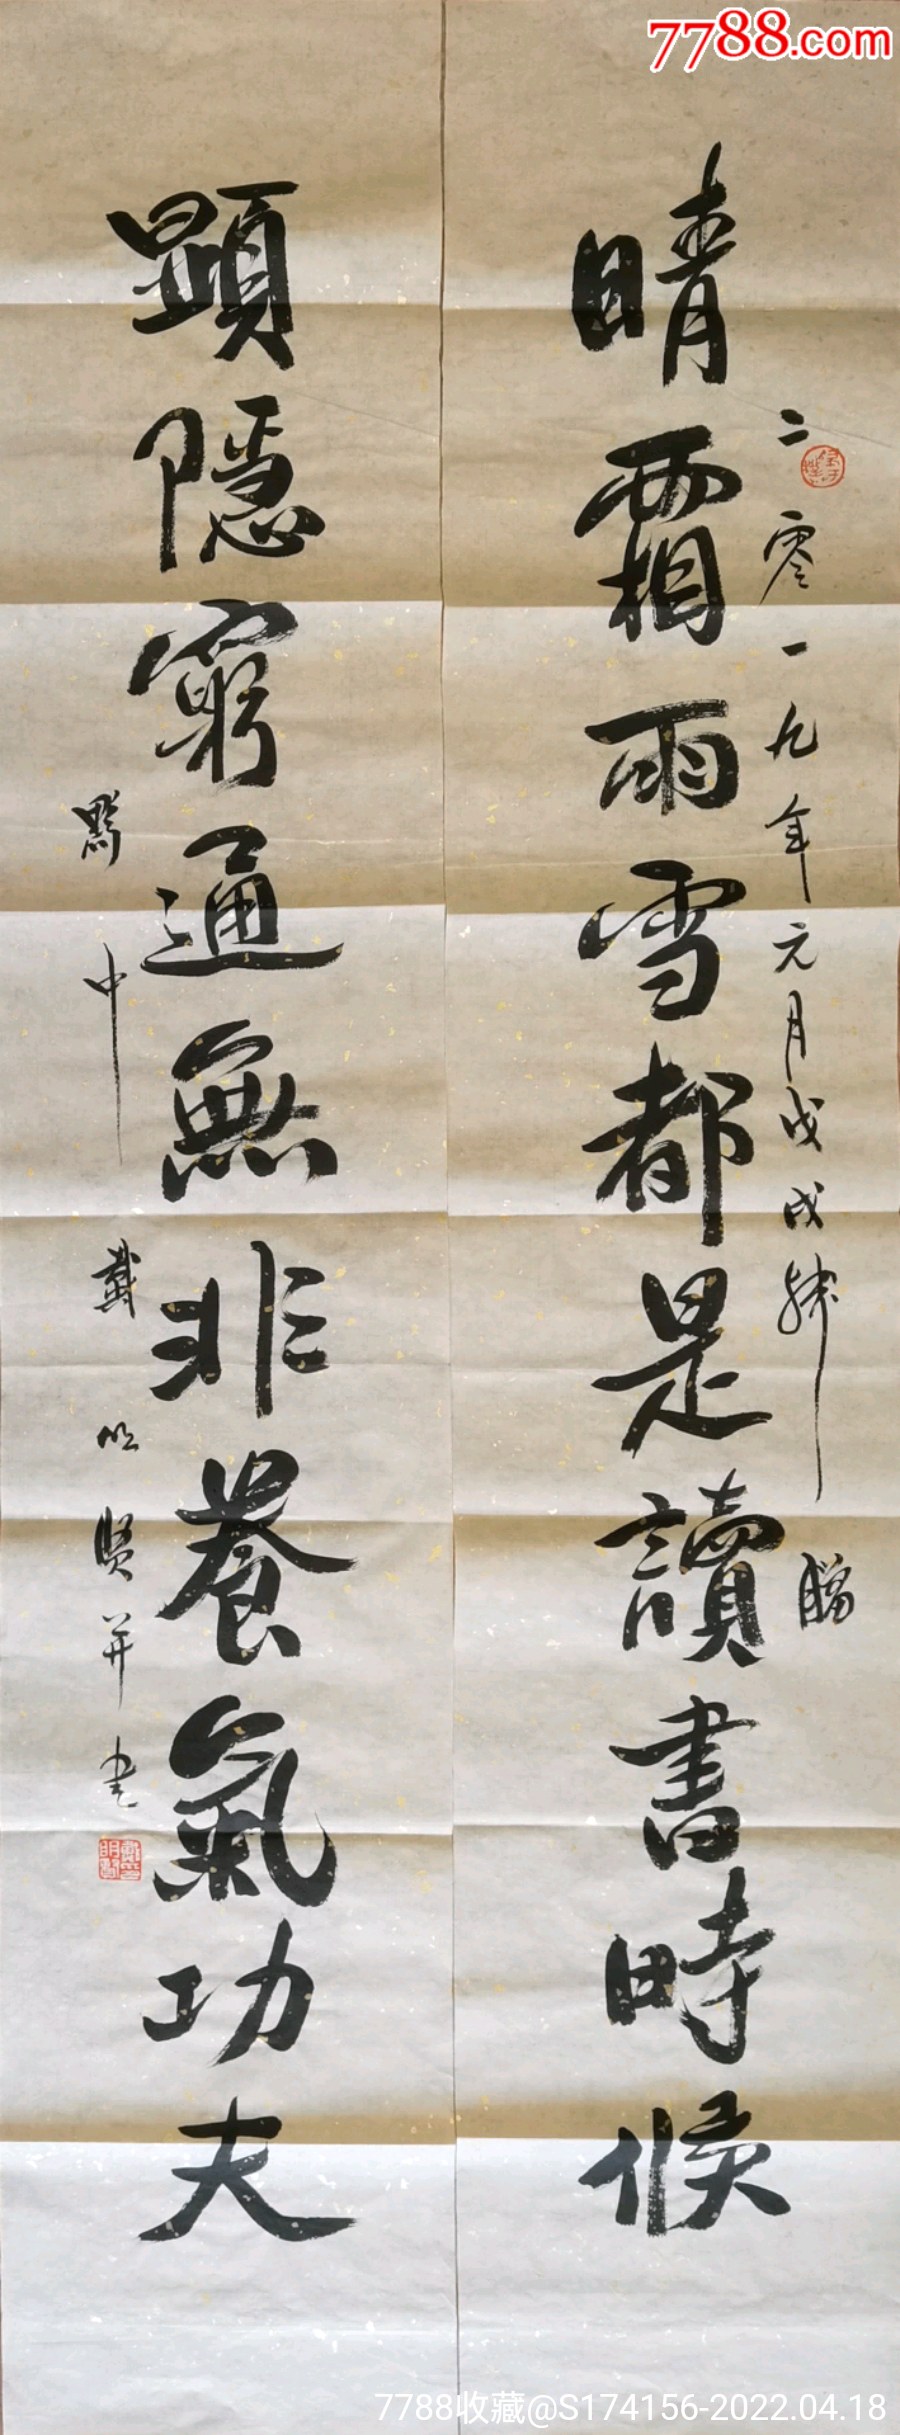 7788.com
晴霜雨雪都是讀書時候
二零一九年元月戊戌肄
臈
顕隱窮通無非養氣功夫
黔中戴明贤并書
7788收藏@S174156-2022.04.18